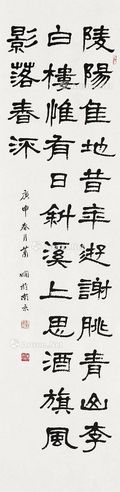 陵陽佳地昔年遊謝朓青山李
白樓惟有日斜溪上思酒旗風
影落春流
庚申春月蕭嫻於南京